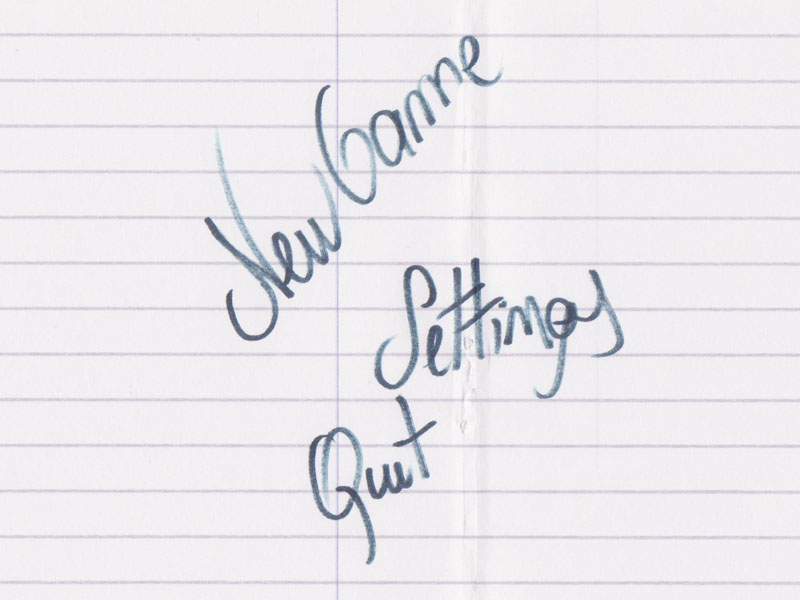 New Game
Settings
Quit